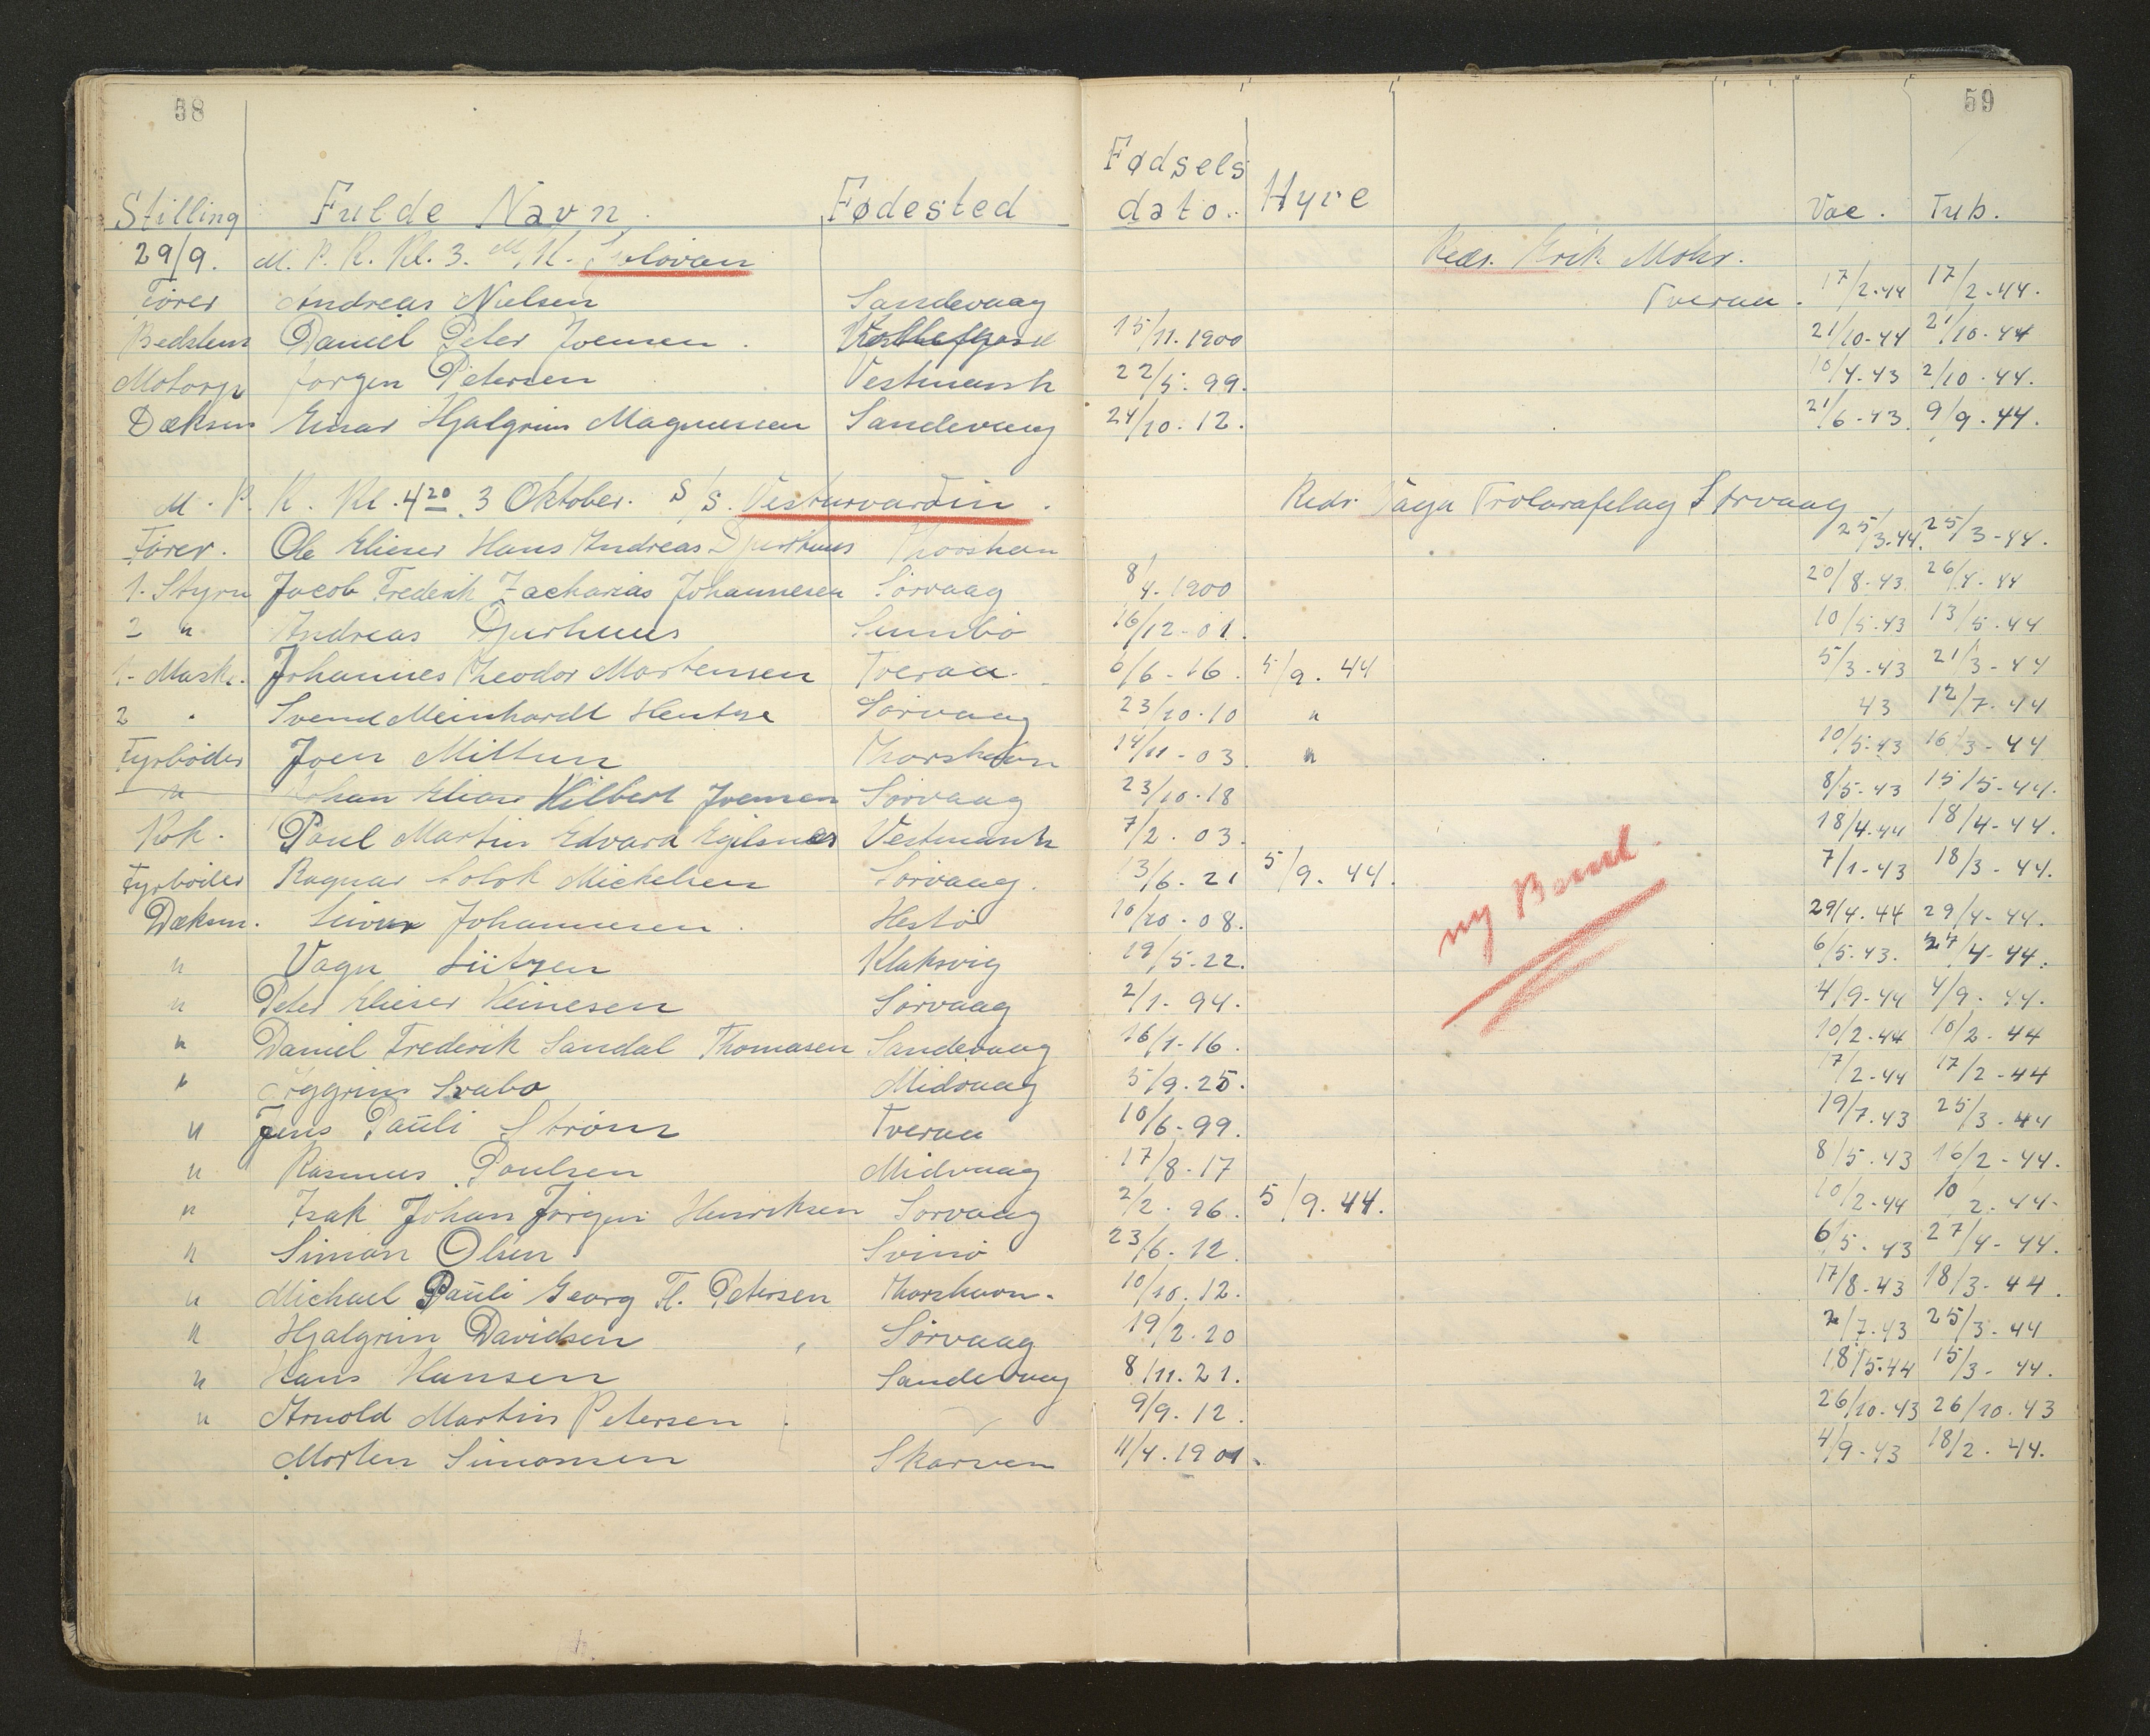 58
59
Stilling Fulde Navn. Fødested Fødsels dato. Hyre Vac. Tub.
29/9. M. P. R. Kl. 3. M/K. Redr. Erik Mohr.
Fører Andreas Nielsen Sandevaag Tveraa. 17/2-44 17/2-44.
Bedstem Daniel Peter Joensen. 15/11. 1900 21/10-44 21/10-44
Motorp Jørgen Petersen Vestmanh 22/5. 99. 10/4-43 2/10-44.
Dæksm Einar Hjalgrim Magnussen Sandevaag 24/10. 12. 21/6-43. 9/9.44.
M. P. R. Kl. 4 20 3 Oktober. S/S. Vesturvardin. Redr. Vága Trolarafelag Sørvaag
Fører. Ole Elieser Hans Andreas Djurhuus Thorshavn 25/3-44. 25/3-44.
1. Styrm Jacob Frederik Zacharias Johannesen Sørvaag 8/4. 1900 20/8-43 26/4-44
2 " Andreas Djurhuus Sumbø 16/12-01. 10/5-43 13/5-44
1. Mask. Johannes Theodor Mortensen Tveraa. 6/6-16 5/9. 44 5/3-43 21/3-44
2 " Svend Meinhardt Hentze Sørvaag 23/10.10 " 43 12/7-44
Fyrbøder Joen Mittun Thorshavn 14/11-03. " 10/5-43 16/3-44
" Johan Elias Hilbert Joensen Sørvaag 23/10-18 8/5-43 15/5-44.
Kok. Poul Martin Edvard Egilsnes Vestmanh 7/2. 03. 18/4-44 18/4-44.
Fyrbøder Ragnar Mickelsen Sørvaag. 13/6-21 5/9. 44. 7/1-43 18/3-44.
Dæksm. Johannesen. Hestø 10/10-08. 29/4-44 29/4-44.
my
" Vagn Lützen Klaksvig 19/5-22. 6/5-43. 27/4-44.
" Peter Elieser Heinesen Sørvaag 2/1-94. 4/9-44 4/9-44.
" Daniel Frederik Sandal Thomasen Sandevaag 16/1-16. 10/2-44 10/2-44
" Svabo Midvaag 5/9.25. 17/2-44 17/2-44
" Jens Pauli Strøm Tveraa 10/6-99. 19/7.43 25/3-44
" Rasmus Poulsen Midvaag 17/8-17 8/5.43 16/2-44.
" Isak Johan Jørgen Henriksen Sørvaag 2/2. 96. 5/9.44. 10/2-44 10/2-44-
" Simon Olsen Svinø 23/6. 12. 6/5-43 27/4-44.
" Michael Pauli Georg Fl. Petersen Thorshavn. 10/10. 12. 17/8-43 18/3-44.
" Hjalgrim Davidsen Sørvaag 19/2-20 2/7-43 25/3-44
" Hans Hansen Sandevaag 8/11. 21. 18/5-44 15/3-44.
" Arnold Martin Petersen 9/9. 12. 26/10-43 26/10.43
Morten Simonsen Skarven 11/4. 1901. 4/9-43 18/2-44.